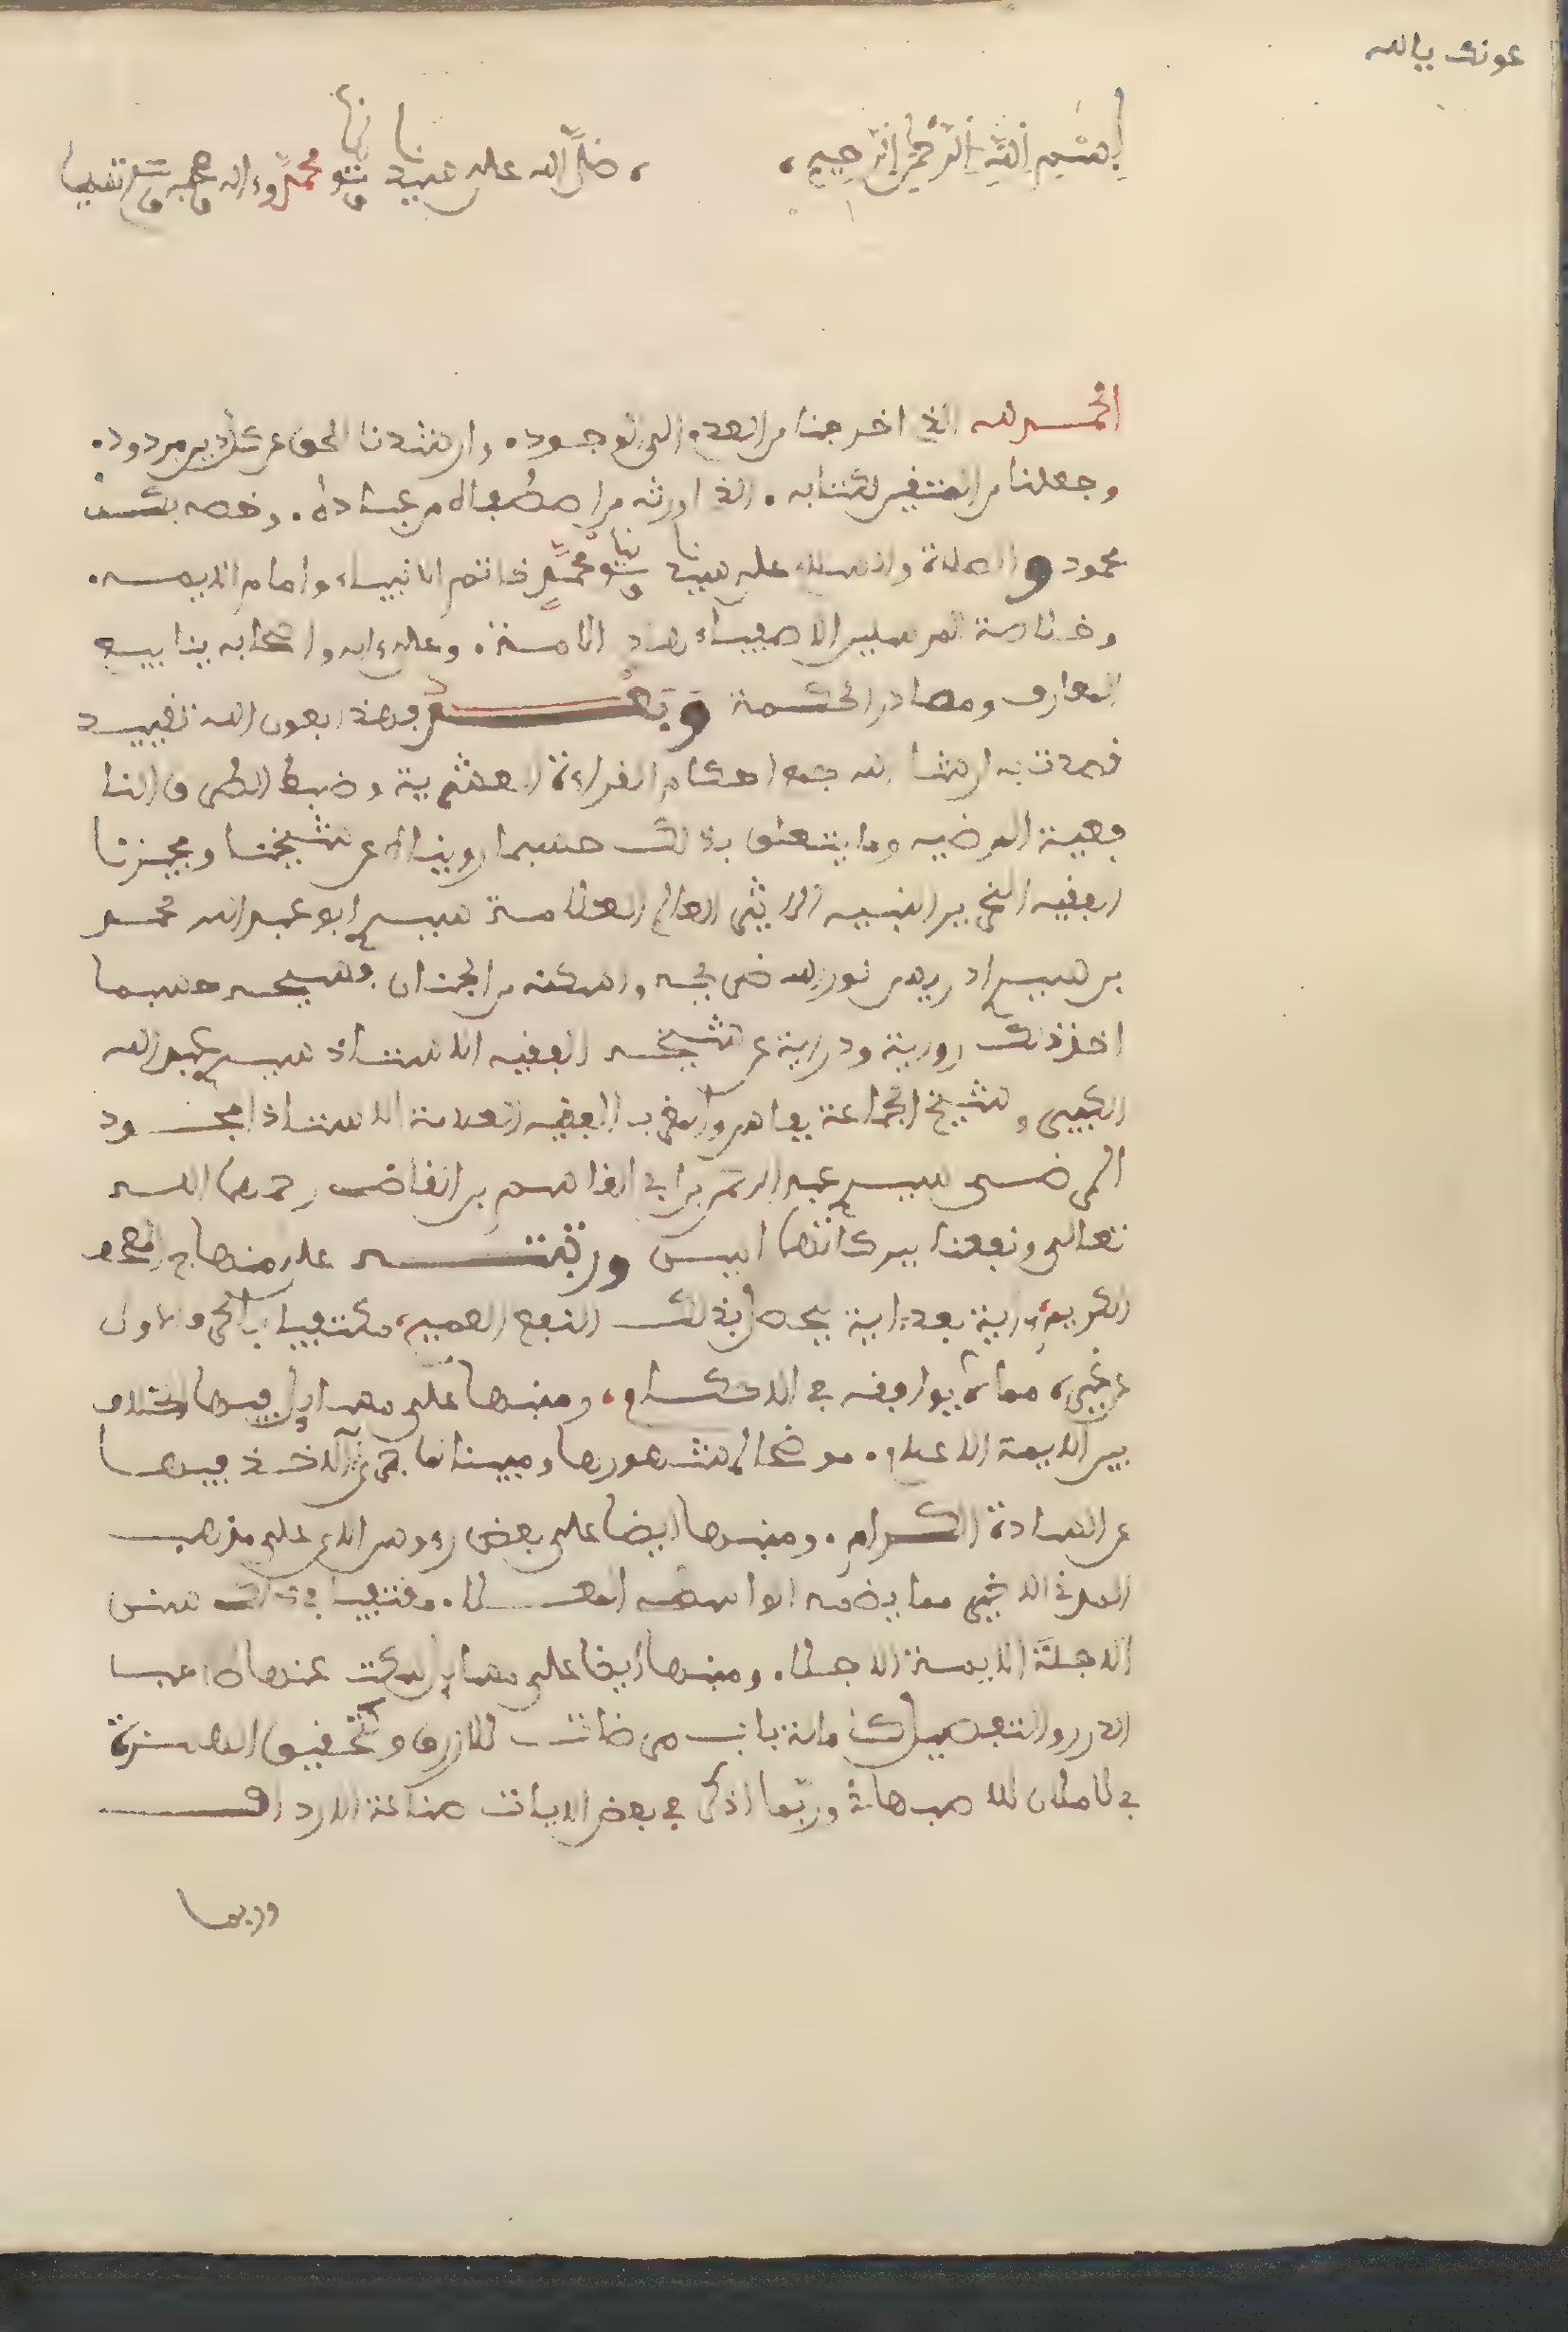 عونك يالله
بسم الله الرحمن الرحيم، صلى الله على سيدنا ونبينا ومولانا محمد وءاله وصحبه وسلم تسليما
الحمد لله الذ اخرجنا من العدم الى الوجود. وارشدنا الحق عن كل دين مردود.
وجعلنا من المتقين لكتابه. الذ اورثه من اصطفاه من عباده. وخصه
محمود والصلاة والسلام على سيدنا ونبينا ومولانا محمد خاتم الانبياء وامام الايمه.
وخلاصة المرسلين الاصفياء الامة. وعلى ءاله واصحابه ينابيع
المعارف ومصادر الحكمة وبعد فهذا بعون الله تقييد
قصدت به ان شا الله جمع احكام القراءة العشرية وضبط الطرق النا
فعية المرضيه وما يتعلق بذلك حسبما رويناه عن شيخنا ومجيزنا
الفقيه النحرير النبيه العالم العلامة سيدي ابو عبد الله محمد
بن سيدي ادريس نور الله ضريحه واسكنه من الجنان فسيحه حسبما
اخذ ذلك رورية ودراية عن شيخه الفقيه الاستاذ سيدي عبد الله
الكبير وشيخ الجماعة بفاس والمغرب الفقيه العلامة الاستاذ المجود
المرضي سيدي عبد الرحمن بن ابي القاسم بن القاضي رحمهما الله
تعالى ونفعنا ببركاتهما امين ورتبته على منهاج المصحف
الكريم، ءاية بعد ءاية يحصل بذلك النفع العميم، مكتفيا بالحرف الاول
عن غيره مما يوافقه في الاحكام، ومنبها على مسايل فيها اختلاف
بين الايمة الاعلام. موضحا لمشهورها ومبينا ما جرى الاخذ فيها
عن السادة الكرام. ومنبها ايضا على بعض رءوس الاي على مذهب
المدني الاخير مما يضمه الواسعه. مقتفيا في ذلك سنن
الاجلة الايمة الاجلا. ومنبها ايضا على مسايل سكت عنها صاحبا
الدرر والتفصيل كامالة باب مرضات للازرق وتحقيق الهمزة
في لاملان للاصبهاني وربما اذكر في بعض الايات صناعة الارداف
وربما